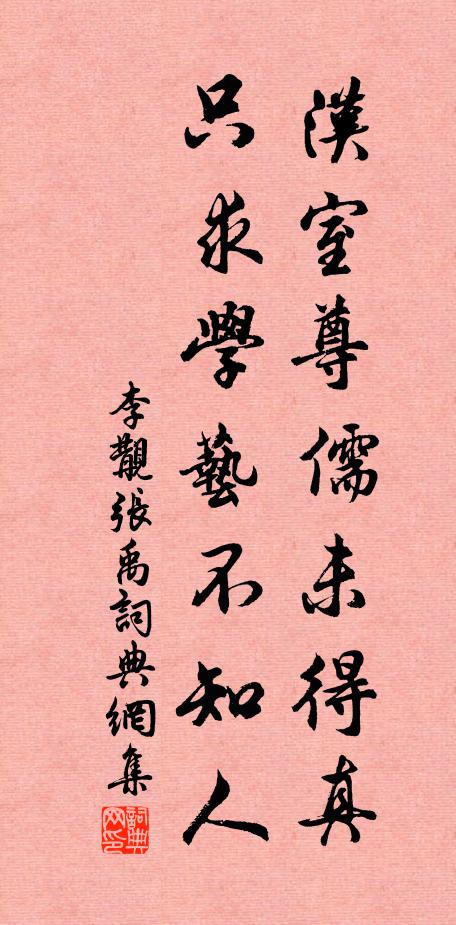 漢室尊儒未得真
只求學藝不知人
李覯張禹詞典網集
詞典網印